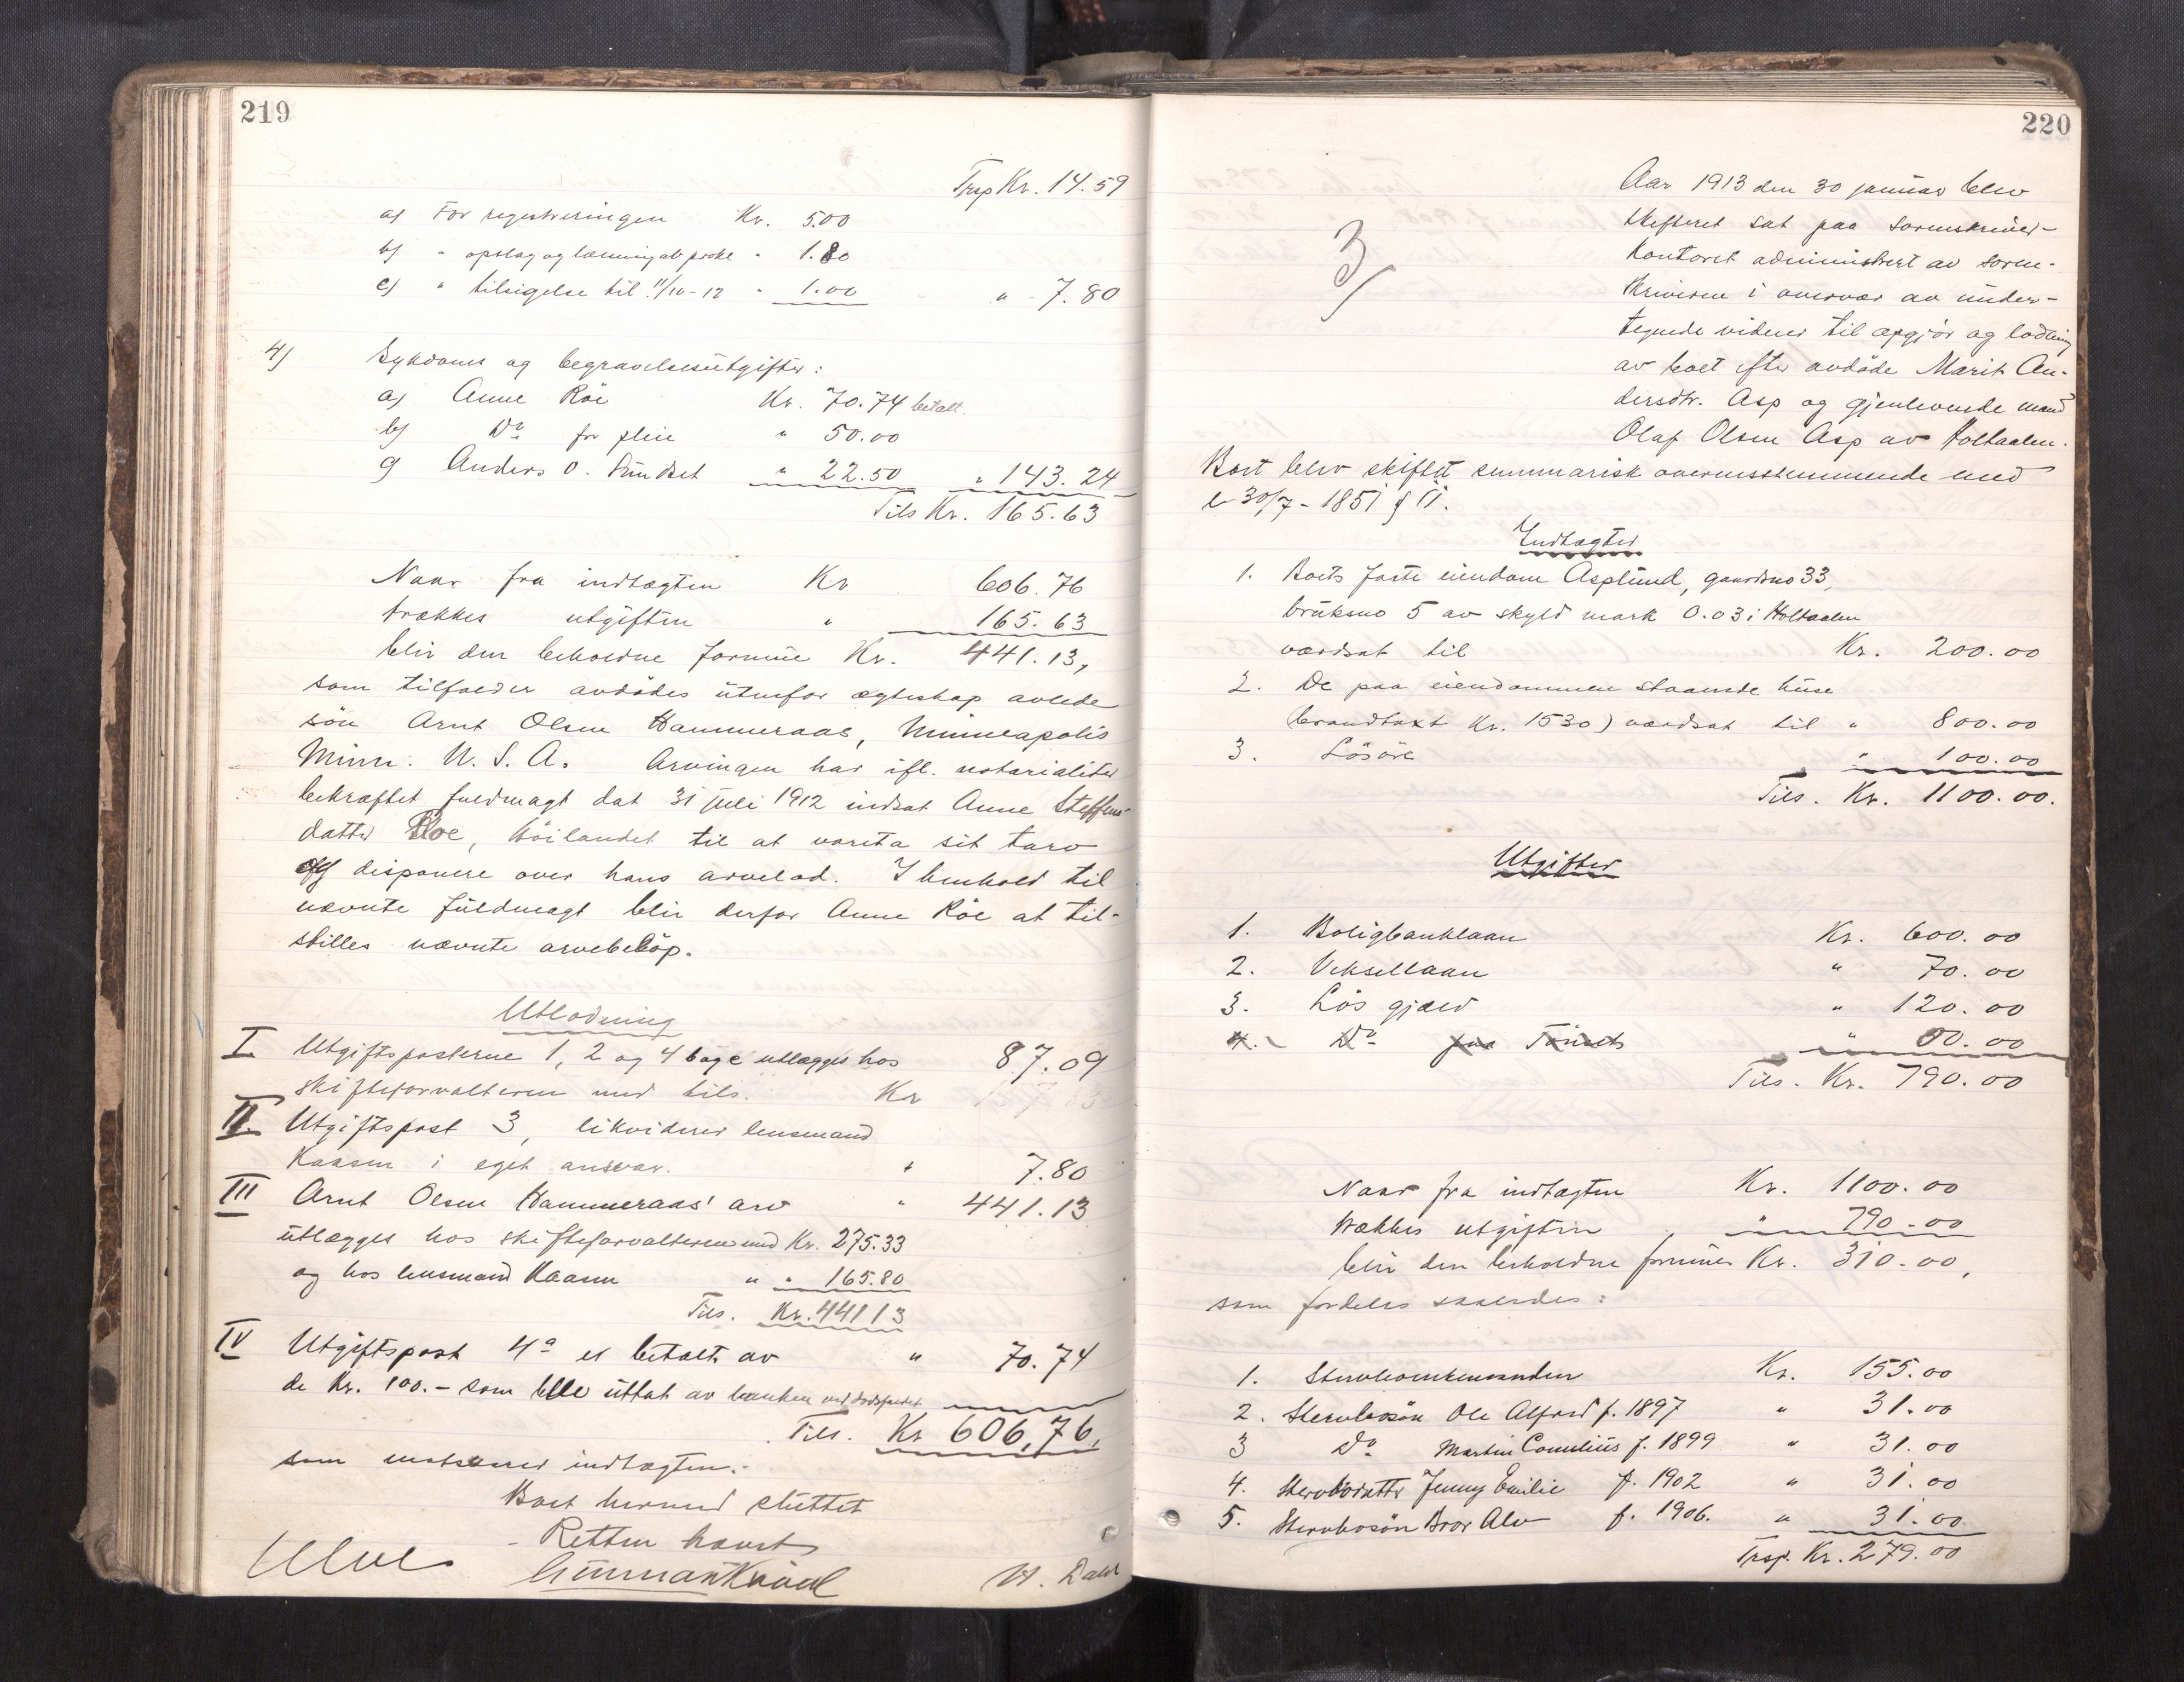 219
Trsp Kr. 14.59
a) For registreringen Kr. 5.00
b) " opslag og læsning av prokl " 1.80
c) " tilsigelse til 11/10-12 " 1.00 " 7.80
4) Sykdoms og begravelsesutgifter:
a) Anne Röe Kr. 70.74 betalt.
b) Do for pleie " 50.00
c) Anders O. Sundset " 22.50 " 143.24
Tils Kr. 165.63
Naar fra indtægten Kr 606.76
trækkes utgiften " 165.63
blir den beholdne formue Kr. 441.13,
som tilfalder avdödes utenfor ægteskap avlede
sön Arnt Olsen Hammeraas, Minneapolis
Minn. U.S.A. Arvingen har ifl. notarialiter
bekræftet fuldmagt dat 31 juli 1912 indsat Anne Steffens-
datter Roe, Höilandet til at vareta sit tarv
og disponere over hans arvelod. I henhold til
nævnte fuldmagt blir derfor Anne Röe at til-
stilles nævnte arvebelöp.
Utlodning
I Utgiftsposterne 1, 2 og 4 b og c utlægges hos 87.09
skifteforvalteren med tils. Kr
II. Utgiftspost 3, likviderer lensmand
Kaasen i eget ansvar. " 7.80
III Arnt Olsen Hammeraas' arv " 441.13
utlægges hos skifteforvalteren med Kr. 275.33
og hos lensmand Kaasen " " 165.80
Tils. Kr. 441 13
IV Utgiftspost 4a er betalt av " 70.74
de Kr. 100.- som blev uttat av banken ved dödsfaldet
Tils. Kr 606,76,
som motsvarer indtægten.
Boet hermed sluttet
Retten hævet
220
3/
Aar 1913 den 30 januar blev
skifteret sat paa sorenskriver-
kontoret administrert av soren-
skriveren i overvær av under-
tegnede vidner til opgjör og lodning
av boet efter avdöde Marit An-
dersdtr. Asp og gjenlevende mand
Olaf Olsen Asp av Holtaalen.
Boet blev skiftet summarisk overensstemmende med
l 30/7 - 1851 § 11.
Indtægter
1. Boets faste eiendom Asplund, gaardsno 33,
bruksno 5 av skyld mark 0.03 i Holtaalen
værdsat til Kr. 200.00
2. De paa eiendommen staaende huse
brandtaxt Kr. 1530) værdsat til " 800.00
3. Lösöre " 100.00
Tils. Kr. 1100.00.
Utgifter
1. Boligbanklaan Kr. 600.00
2. Veksellaan " 70.00
3. Lös gjæld " 120.00
4. Do paa Tönset " 00.00
Tils. Kr. 790.00
Naar fra indtægten Kr. 1100.00
trækkes utgiften " 790.00
blir den beholdne formue Kr. 310.00,
som fordeles saaledes:
1. Stervboenkemanden Kr. 155.00
2. Stervbosön Ole Alfred f. 1897 " 31.00
3 Do Martin Cornelius f. 1899 " 31.00
4. Stervbodatter Jenny Emilie f. 1902 " 31.00
5. Stervbosön Bror Alv f. 1906. " 31.00
Trsp. Kr. 279.00